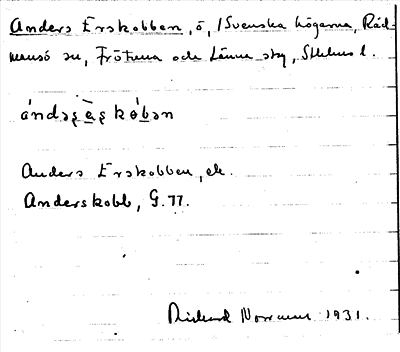 Anders Erskobben, ö, i Svenska högarna, Råd-
mansö sn, Frötuna och Länna skg, Sthlms l.
ándəʂ ä̀ʂ kóbən
Anders Erskobben, ek.
Anderskobb, G. 77.
Rickard Norrman 1931.